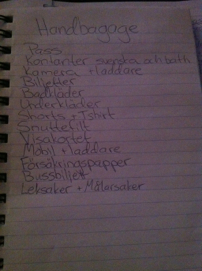 Handbagage
Pass
Kontanter svenska och bath
Kamera + laddare
Biljetter
Badkläder
Underkläder
Shorts + Tshirt
Snuttefilt
Visakortet
Mobil + laddare
Försäkringspapper
Bussbiljett
Leksaker + Målarsaker